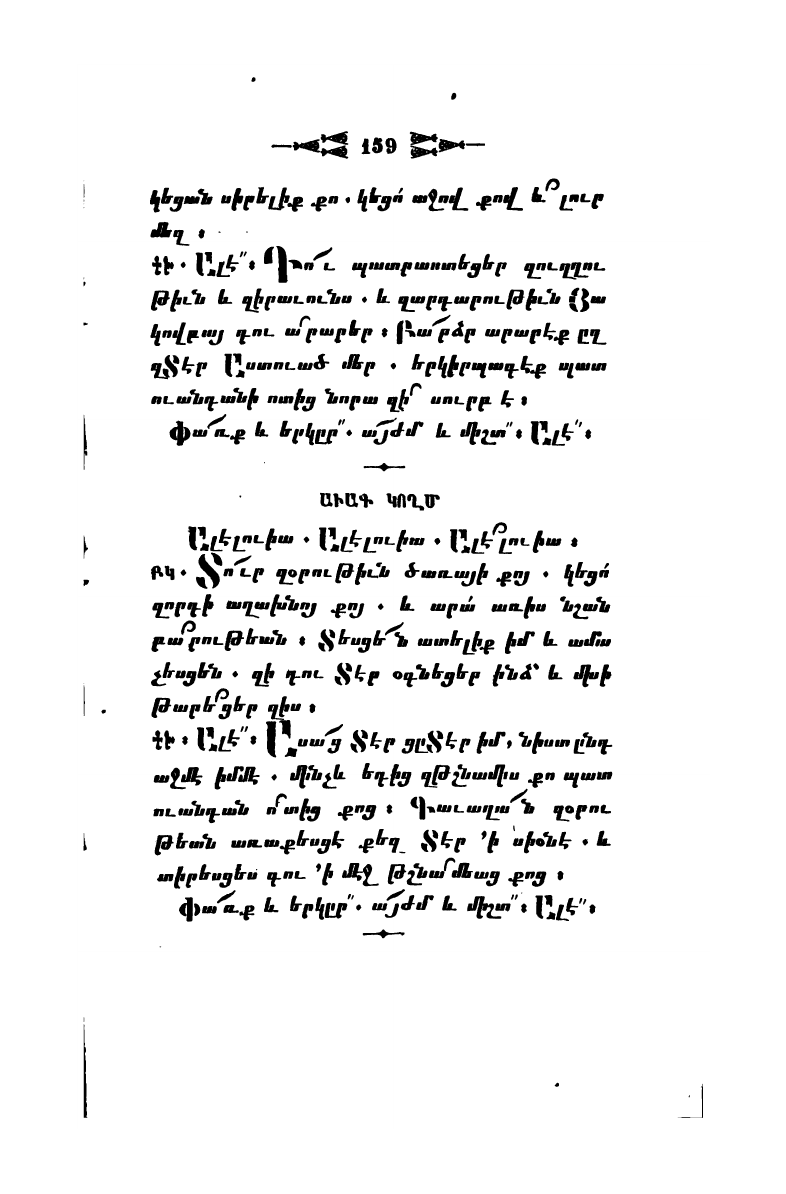 159
կեցան սիրելիք քո . կեցո՛ աջով քով և՟ լուր
մեզ :
ՎԻ . Ալէ՟ : Դո՜ւ պատրաստեցեր զուղղու
թիւն և զիրաւունս . և զարդարութիւն Յա
կովբայ դու ա՟րարեր : Բա՜րձր արարէք ըզ
զՏէր Աստուած մեր . երկիրպագէք պատ
ուանդանի ոտից նորա զի՟ սուրբ է :
Փա՜ռք և երկըր՟. ա՜յժմ և միշտ՟ : Ալէ՟ :
ԱՒԱԳ ԿՈՂՄ
Ալէլուիա . Ալէլուիա . Ալէ՟լուիա :
ԲԿ . Տո՜ւր զօրութիւն ծառայի քոյ . կեցո՛
զորդի աղախնոյ քոյ . և արա՛ առիս նշան
բա՟րութեան : Տեսցե՜ն ատելիք իմ և ամա
չեսցեն . զի դու Տէր օգնեցեր ինձ՝ և մխի
թարե՟ցեր զիս :
ՎԻ : Ալէ՟ : Ասա՜ց Տէր ցըՏէր իմ, նիստ ընդ
աջմէ իմմէ . մինչև եդից զթշնամիս քո պատ
ուանդան ո՟տից քոց : Գաւազա՜ն զօրու
թեան առաքեսցէ քեզ Տէր ՚ի սիօնէ . և
տիրեսցես դու ՚ի մէջ թշնա՟մեաց քոց :
Փա՜ռք և երկըր՟. ա՜յժմ և միշտ՟ : Ալէ՟ :